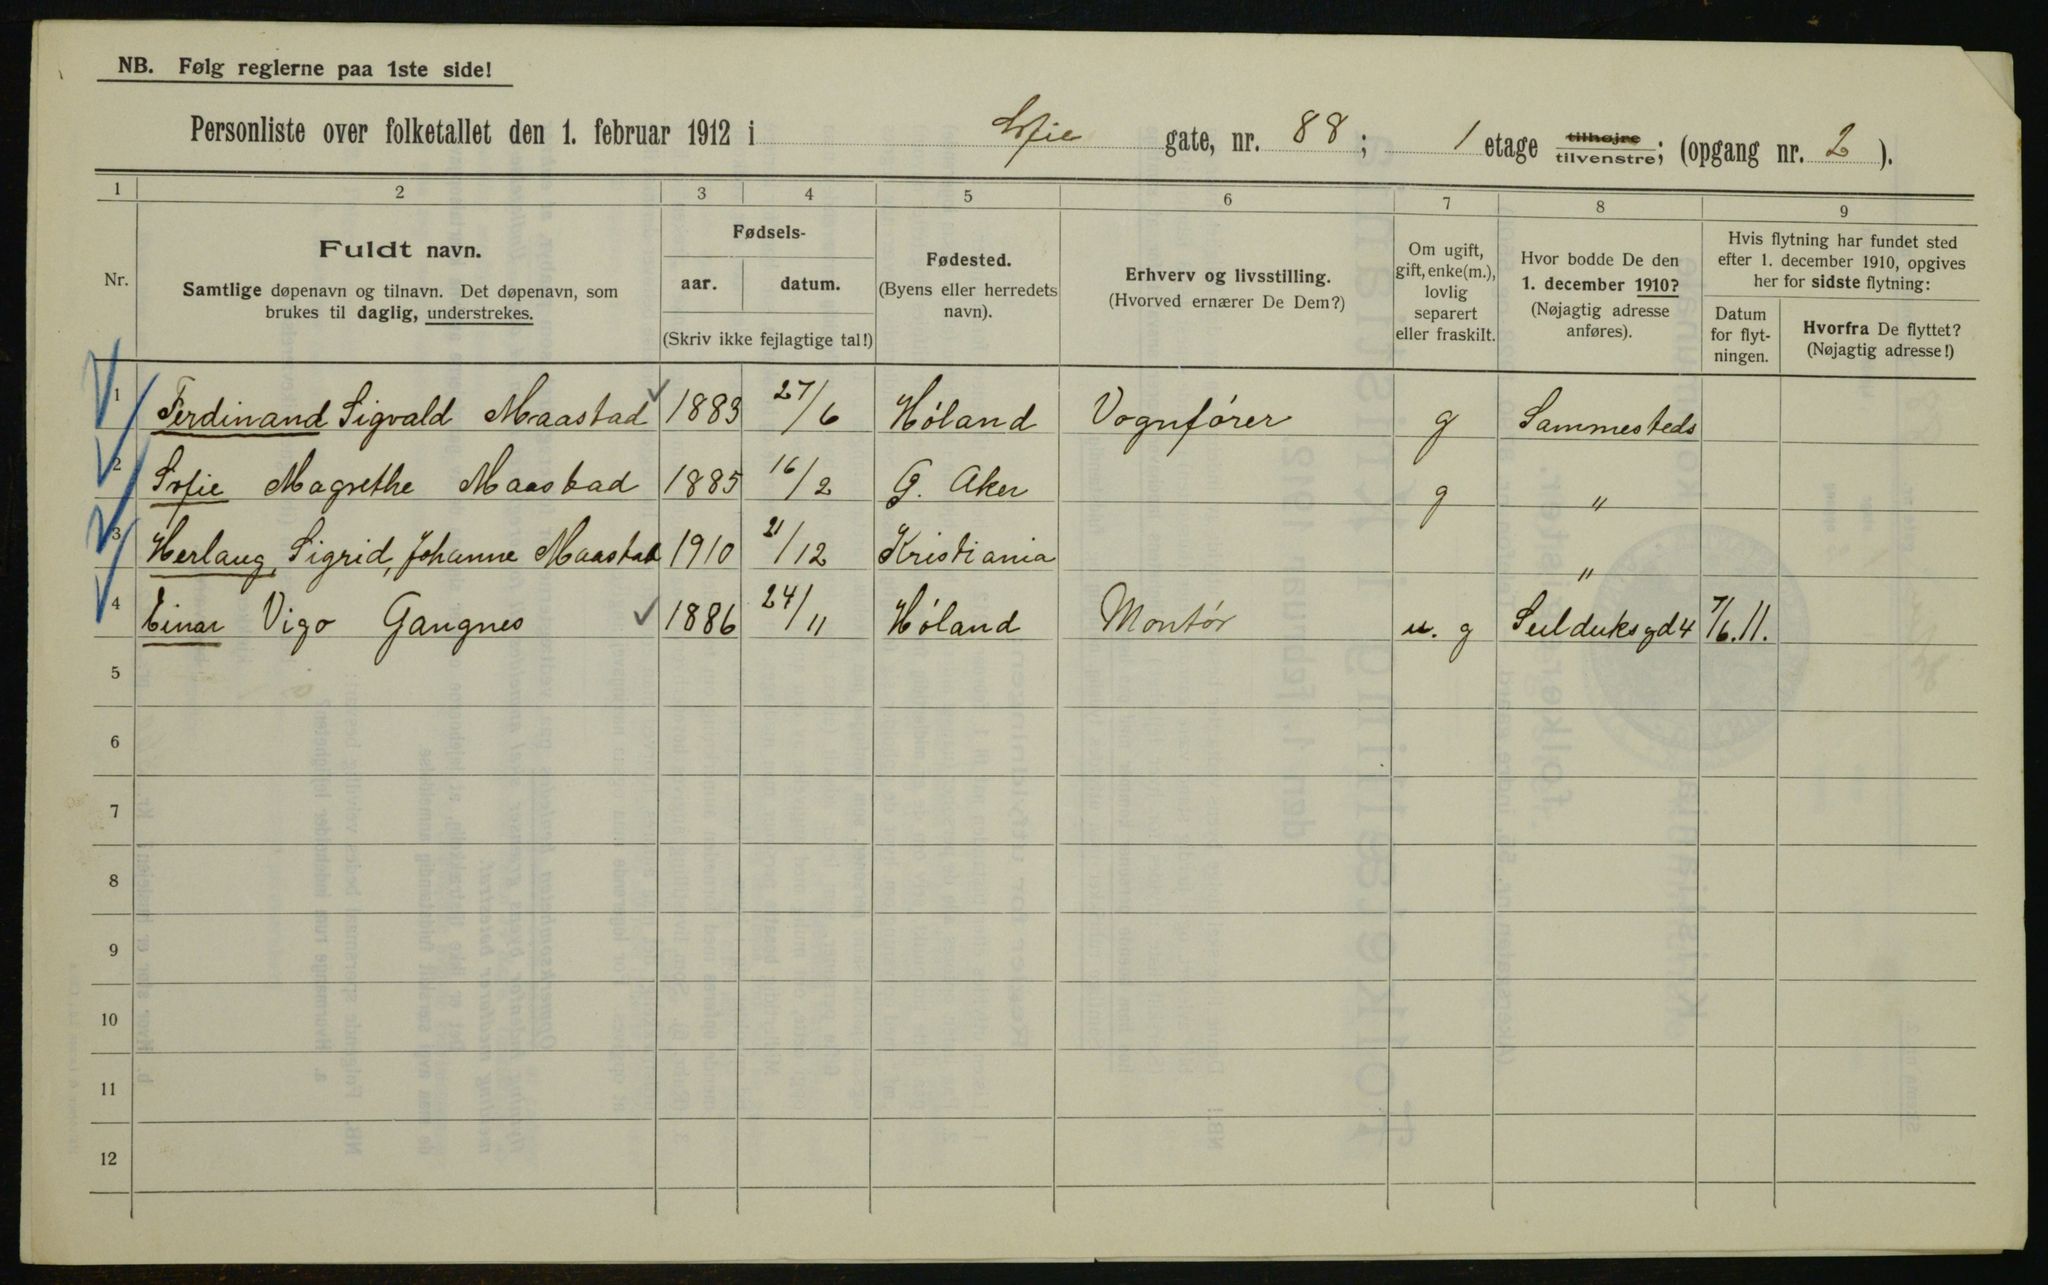 NB. Følg reglerne paa 1ste side!
Personliste over folketallet den 1. februar 1912 i Sofie gate, nr. 88; 1 etage tilhøjre tilvenstre; (opgang nr. 2).
1 2 3 4 5 6 7 8 9
Nr.
Fuldt navn.
Samtlige døpenavn og tilnavn. Det døpenavn, som
brukes til daglig, understrekes.
Fødsels-
aar. datum.
(Skriv ikke fejlagtige tal!)
Fødested.
(Byens eller herredets
navn).
Erhverv og livsstilling.
(Hvorved ernærer De Dem?)
Om ugift,
gift, enke(m.),
lovlig
separert
eller fraskilt.
Hvor bodde De den
1. december 1910?
(Nøjagtig adresse
anføres).
Hvis flytning har fundet sted
efter 1. december 1910, opgives
her for sidste flytning:
Datum
for flyt-
ningen.
Hvorfra De flyttet?
(Nøjagtig adresse!)
1 Ferdinand Sigvald Maastad 1883 27/6 Høland Vognfører g Sammesteds
2 Sofie Magrethe Maastad 1885 16/2 G. Aker g "
3 Herlaug, Sigrid, Johanne Maastad 1910 21/12 Kristiania "
4 Einar Vigo Gangnes 1886 24/11 Høland Montør u. g 4 7/6.11.
5
6
7
8
9
10
11
12